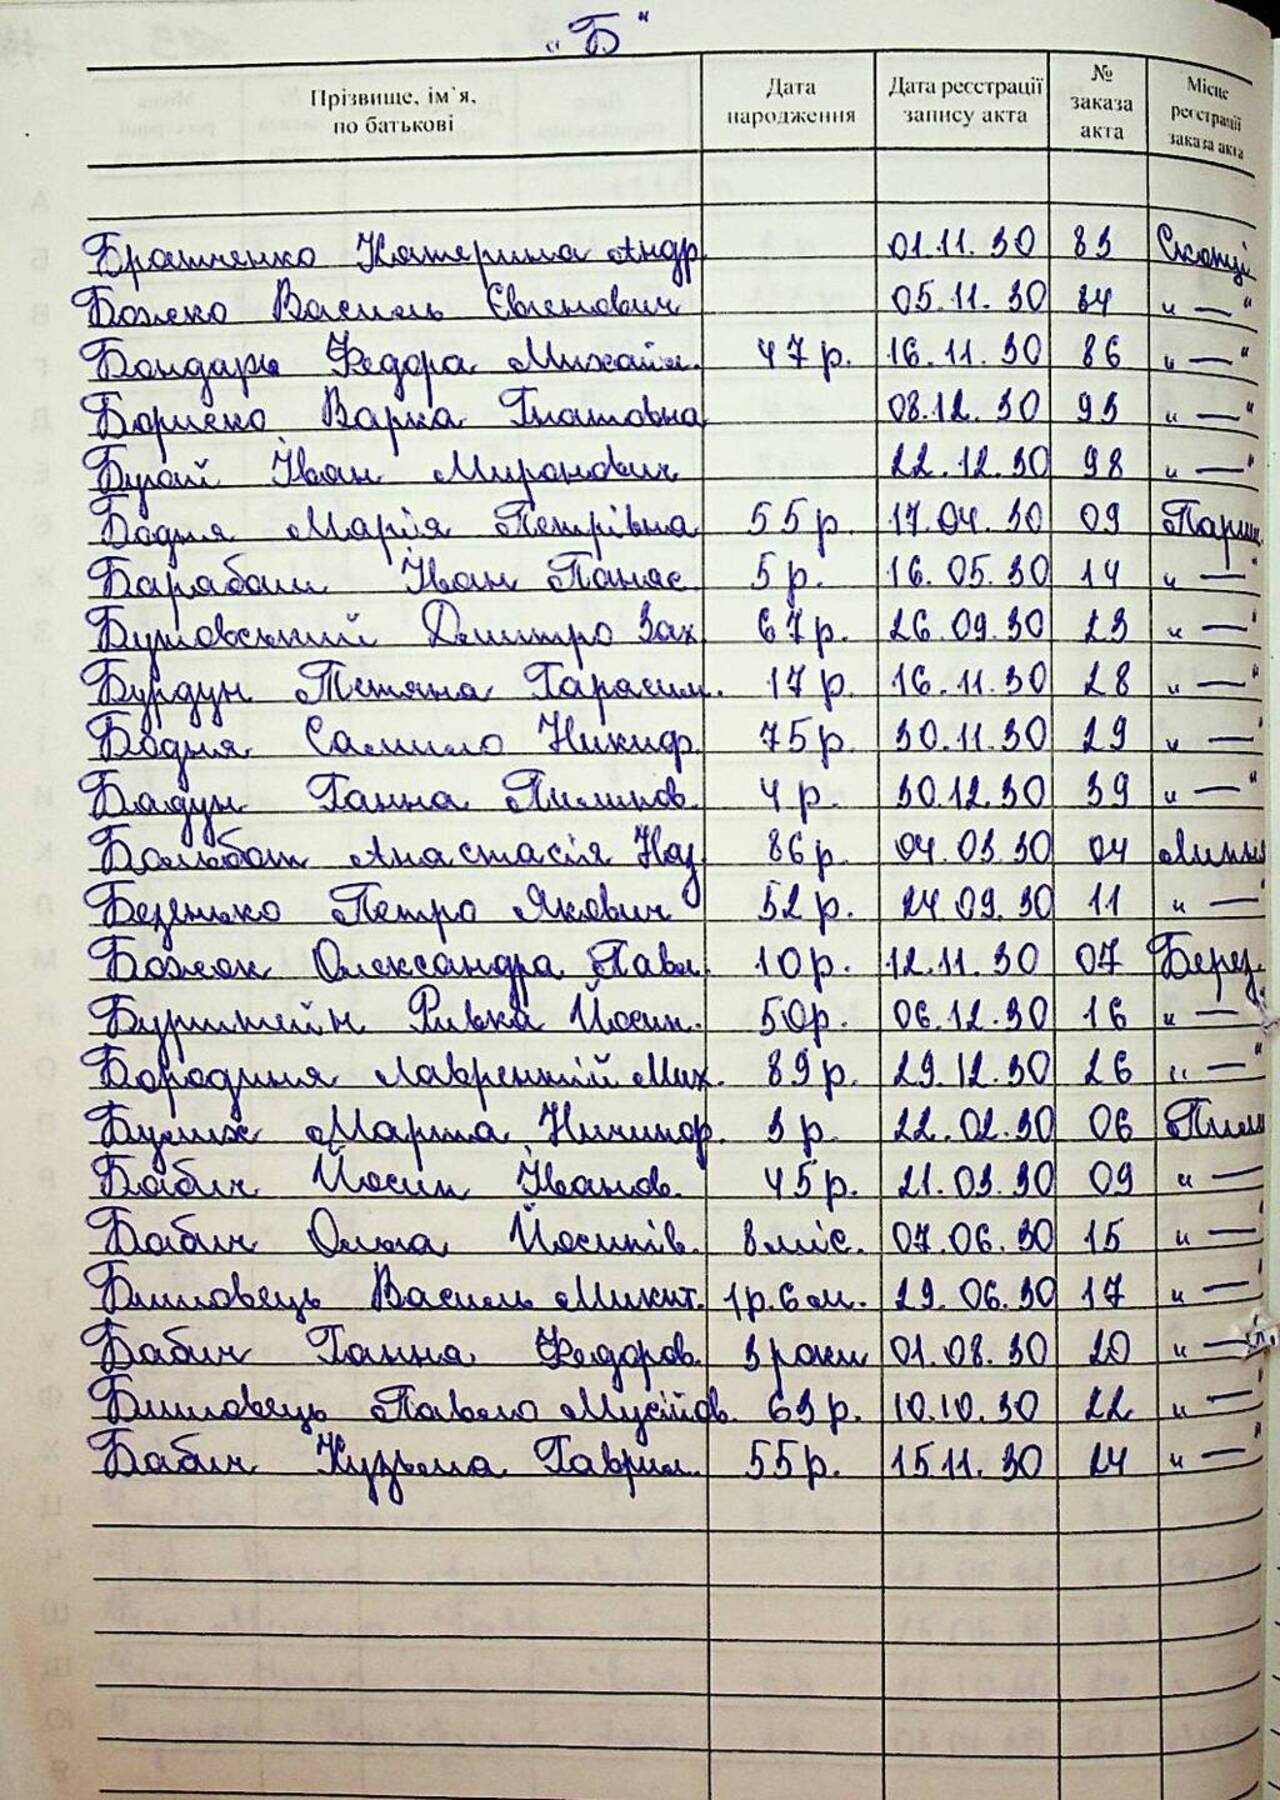 "Б"
Прізвище, ім`я, по батькові Дата народження Дата реєстрації запису акта № заказа акта Місце реєстрації заказа акта
Братченко Катерина Андр. 01.11.30 83
Божко Василь Євгенович 05.11.30 84 " — "
Бондарь Федора Михайл. 47 р. 16.11.30 86 " — "
Бориско Варка Гнатовна 08.12.30 93 " — "
Бугай Іван Миронович 22.12.30 98 " — "
Бодня Марія Петрівна 55 р. 17.04.30 09
Барабаш Іван Панас. 5 р. 16.05.30 14 " — "
Бутовський Дмитро Зах. 67 р. 26.09.30 23 " — "
Бурдун Тетяна Гарасим. 17 р. 16.11.30 28 " — "
Бодня Самило Никиф. 75 р. 30.11.30 29 " — "
Бадун Ганна Пилипов. 4 р. 30.12.30 39 " — "
Анастасія Наз. 86 р. 04.03.30 04
Безенько Петро Якович 52 р. 24.09.30 11 " —
Божок Олександра Павл. 10 р. 12.11.30 07 Берез.
Бурштейн Ривка Йосип. 50 р. 06.12.30 16 " —
Бородиня Лаврентій Мих. 89 р. 29.12.30 26 " — "
Марта Ничипор. 3 р. 22.02.30 06
Бабич Йосип Іванов. 45 р. 21.03.30 09 " —
Бабич Ольга Йосипів. 8 міс. 07.06.30 15 " —
Билловець Василь Микит. 1 р. 6 м. 29.06.30 17 " — "
Бабич Ганна Федоров. 3 роки 01.08.30 20 " —
Билловець Павло Мусійов. 63 р. 10.10.30 22 " — "
Бабич Кузьма Гаврил. 55 р. 15.11.30 24 " — "